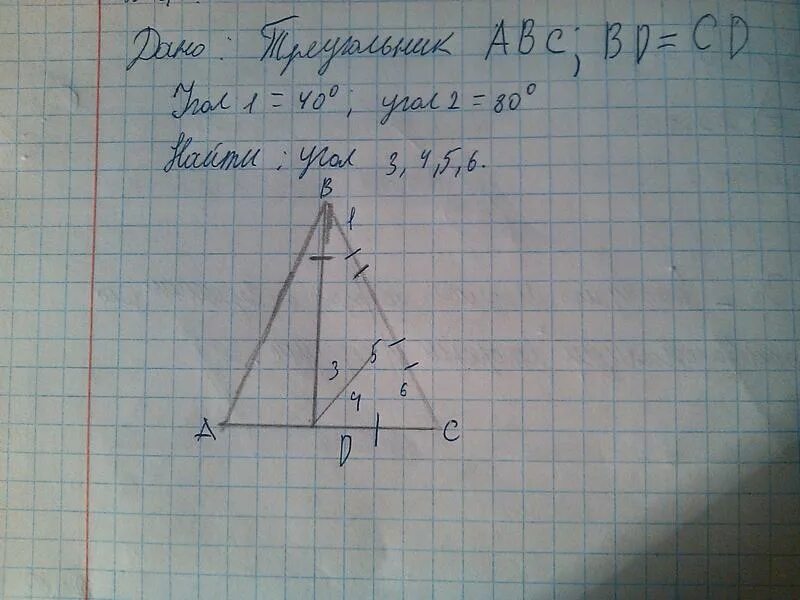 Дано: Треугольник ABC; BD = CD
Угол 1 = 40°; угол 2 = 80°
Найти: угол 3, 4, 5, 6.
B
1
5
3
4
6
A
C
D